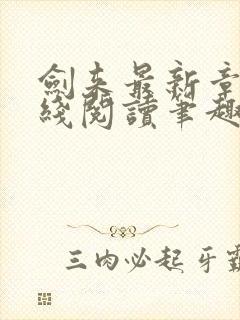 劍来最新章
綫閱讀筆趣
三肉必起牙霸